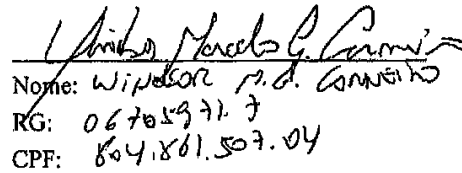 Marcelo G.
Nome: WINDSOR M.G. CARNEIRO
RG: 06705971.7
CPF: 804.861.507.04